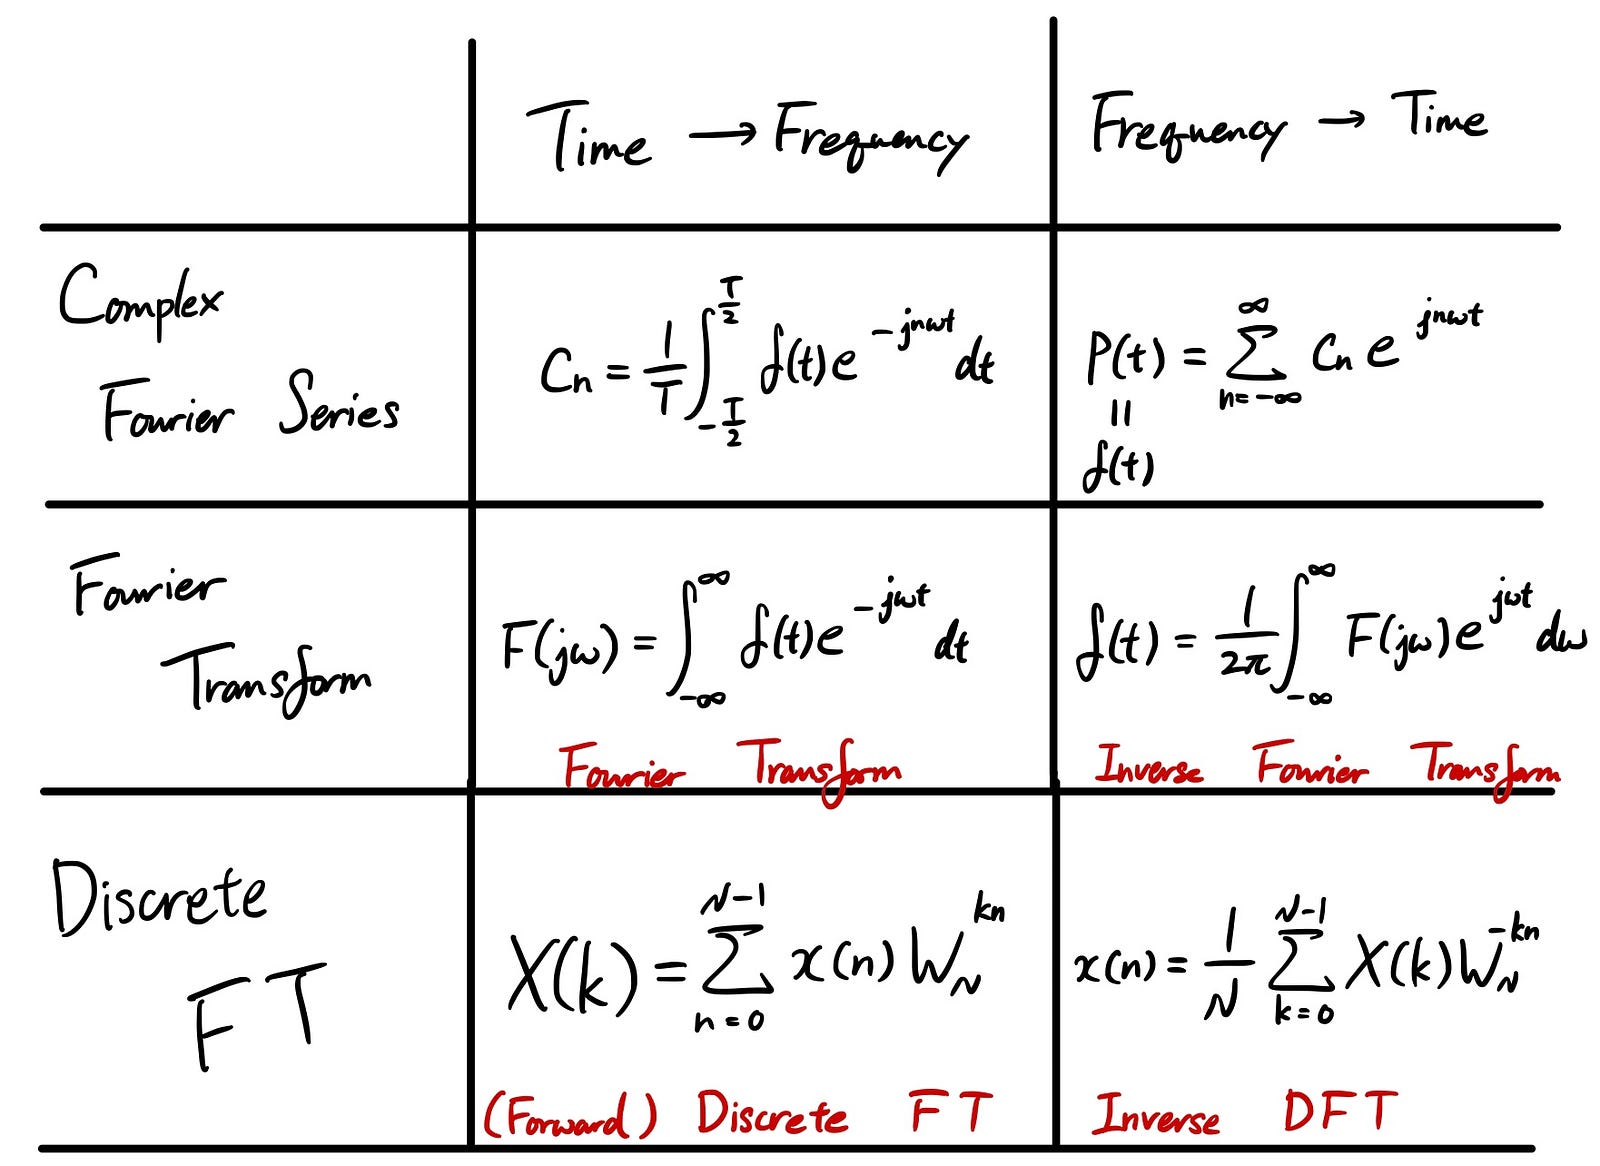 Time → Frequency
Frequency → Time
Complex
Fourier Series
Cn = 1/T ∫_{-T/2}^{T/2} f(t) e^{-jnωt} dt
P(t) = ∑_{n=-∞}^{∞} Cn e^{jnωt}
||
f(t)
Fourier
Transform
F(jω) = ∫_{-∞}^{∞} f(t) e^{-jωt} dt
Fourier Transform
f(t) = 1/2π ∫_{-∞}^{∞} F(jω) e^{jωt} dω
Inverse Fourier Transform
Discrete
FT
X(k) = ∑_{n=0}^{N-1} x(n) W_N^{kn}
(Forward) Discrete FT
x(n) = 1/N ∑_{k=0}^{N-1} X(k) W_N^{-kn}
Inverse DFT